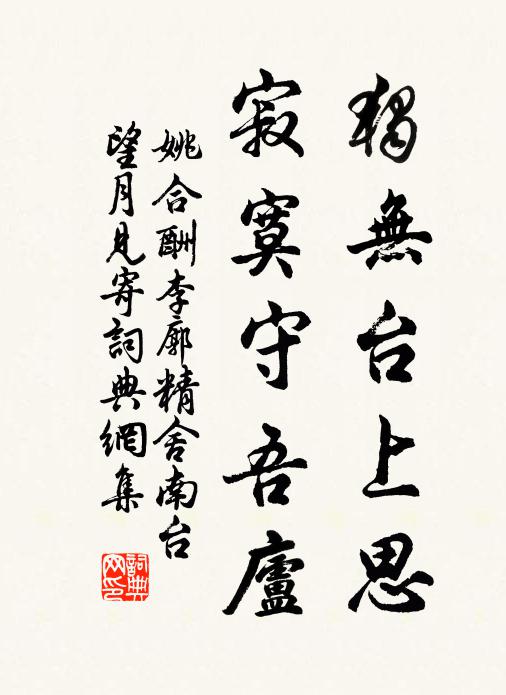 獨無台上思
寂寞守吾廬
姚合酬李廓精舍南台
望月見寄詞典網集
詞典
网印